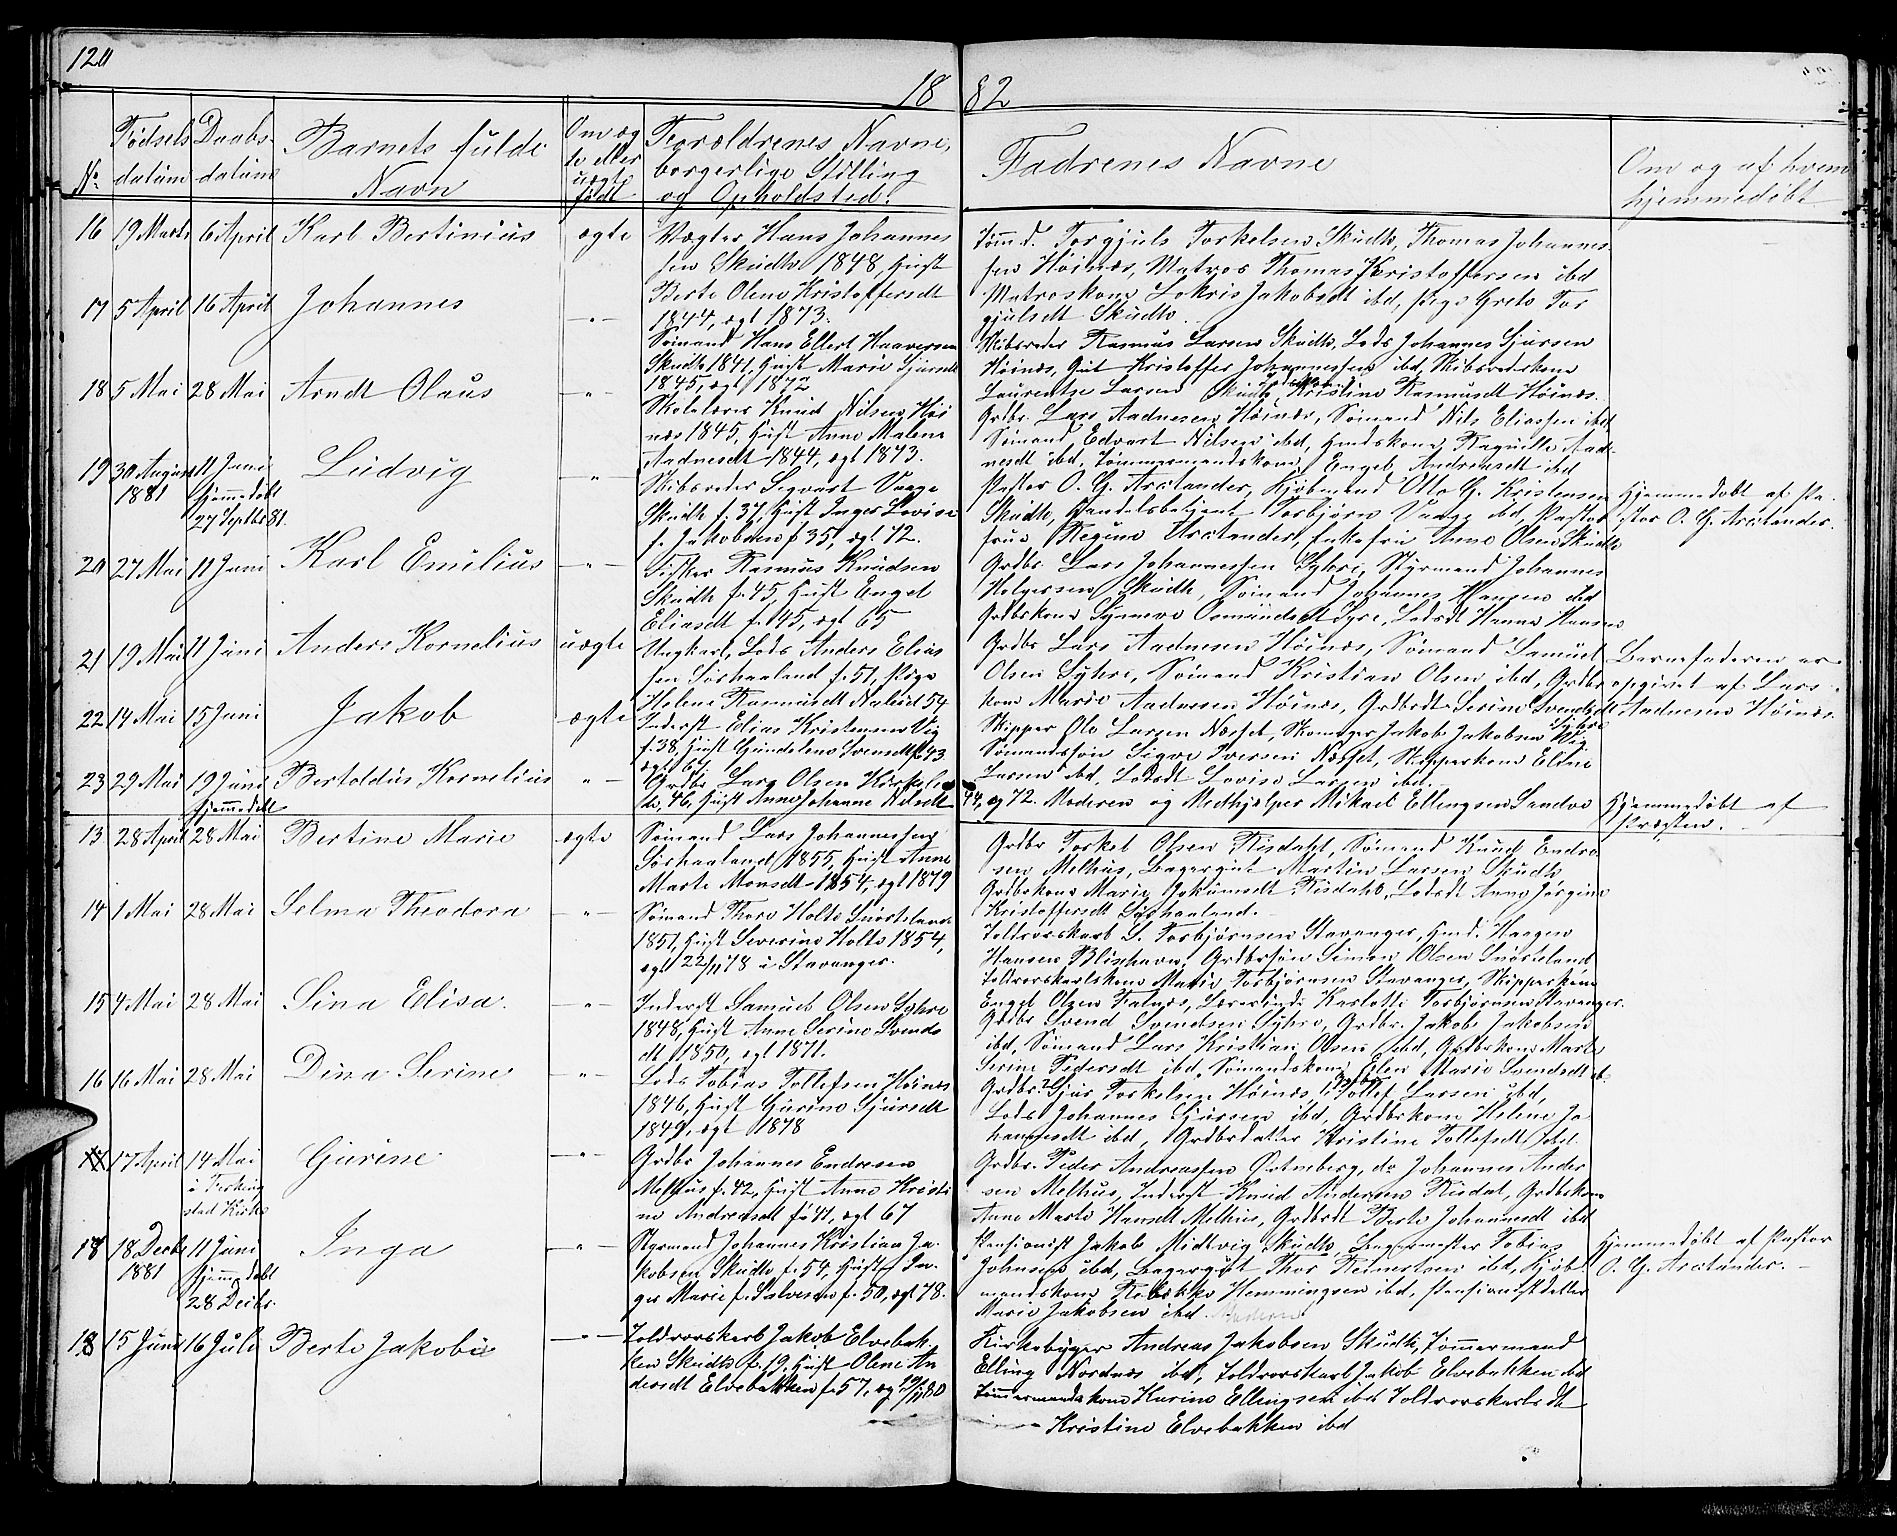 120
18 82
No. Fødsels datum Daabs- datum Barnets fulde Navn Om ægte eller uægte født Forældrenes Navne, borgerlige Stilling og Opholdsted. Fadrenes Navne Om og af hvem hjemmedøbt
16 19 Marts 6 April Karl Bertinius ægte
Vægter Hans Johannes
sen Skudh 1848, Hust
Berte Olene Kristoffersdt
1844, ægt 1873.
Tømd. Torgjuls Torkelsen Skudh, Thomas Johannes-
sen Høinæs, Matros Thomas Kristoffersen ibd
Matroskone Lokris Jakobsdt ibd, Pige Grete Tor
gjulsdt Skudh.
17 5 April 16 April Johannes — " —
Sømand Hans Ellert Haaversen
Skudh 1841, Hust Marie Sjursdt
1845, ægt 1872
Skibsreder Rasmus Larsen Skudh, Lods Johannes Sjursen
Høinæs, Gut Kristoffer Johannessen ibd, Skibsrederkone
Laurentse Larsen Skudh, Kristine Rasmusdt Høinæs.
18 5 Mai 28 Mai Arndt Olaus — " —
Skolelærer Knud Nilsen Høi
næs 1845, Hust Anne Malene
Aadnesdt 1844, ægt 1873.
Grdbr. Lars Aadnesen Høinæs, Sømand Nils Eliassen ibd
Sømand Edvart Nilsen ibd, Ragnilde Aad-
nesdt ibd, Tømmermandskone Engeb. Andreasdt ibd
19 30 August 1881 11 Juni hjemmedøbt 27 Septbr 81. Ludvig — " —
Skibsreder Segvart Vaage
Skudh f. 37, Hust Inger Lovise
f. Jakobsen f 35, ægt 72.
Pastor O. G. Arctander, Kjøbmand Otto G. Kristensen
Skudh, Handelsbetjent Torbjørn Vaage ibd, Pastor
frue Regine Arctander, Enkefru Anne Olsen Skudh
Hjemmedøbt af Pa-
stor O. G. Arctander.
20 27 Mai 11 Juni Karl Emilius — " —
Fisker Rasmus Knudsen
Skudh f. 45, Hust Engel
Eliasdt f. 45, ægt 65
Grdbr. Lars Johannessen Syhre, Styrmand Johannes
Holgersen Skudh, Sømand Johannes Hansen ibd
Grdbrkone Synneve Osmundsdt Syre, Lodsdt Hanna Hansen
21 19 Mai 11 Juni Anders Kornelius uægte
Ungkarl, Lods Anders Elias
sen Sørhaaland f. 51, Pige
Helene Rasmusdt 54
Grdbr Lars Aadnesen Høinæs, Sømand Samuel
Olsen Syhre, Sømand Kristian Olsen ibd, Grdbr
kone Marie Aadnesen Høinæs, Grdbrdt Serine Svendsdt Syhre
Barnefaderen er
opgivet af Lars
Aadnesen Høinæs.
22 14 Mai 15 Juni Jakob ægte
Inderst Elias Kristensen Vig
f. 38, Hust Gundelene Svensdt f. 43
ægt 67
Skipper Ole Larsen Næsset, Skomager Jakob Jakobsen Vig
Sømandssøn Sigve Iversen Næsset, Skipperkone Eline
Larsen ibd, Lodsdt Lovise Larsen ibd.
23 29 Mai 19 Juni hjemmedøbt Bertoldus Kornelius — " —
Grdbr Lars Olsen Kirkele
te, 46, Hust Anne Johanne Nilsdt
44, ægt 72. Moderen og Medhjælper Mikael Ellingsen Sandve
Hjemmedøbt af
Præsten.
13 28 April 28 Mai Bertine Marie ægte
Sømand Lars Johannessen
Sørhaaland 1855, Hust Anne
Marte Monsdt 1854, ægt 1879
Grdbr Torkel Olsen Risdahl, Sømand Knud Endre
sen Melhus, Bagergut Martin Larsen Skudh
Grdbrkone Marie Jokumsdt Risdahl, Lodsdt Anne Jørgine
Kristoffersdt Sørhaaland.
14 1 Mai 28 Mai Selma Theodora — " —
Sømand Thore Holte Snørteland
1851, Hust Severine Holte 1854,
ægt 22/11 78 i Stavanger.
Toldrorskarl S. Torbjørnsen Stavanger, Haagen
Hansen Blixhavn, Grdbrsøn Simon Olsen Snørteland
Toldrorskarlskone Marie Torbjørnsen Stavanger, Skipperskone
Engel Olsen Falnæs, Lærerinde Karlotte Torbjørnsen Stavanger.
15 4 Mai 28 Mai Sina Elisa. — " —
Inderst Samuel Olsen Syhre
1848, Hust Anne Serine Svends
dt 1850, ægt 1871.
Grdbr Svend Svendsen Syhre, Grdbr. Jakob Jakobsen
ibd, Sømand Lars Kristian Olsen ibd, Grdbrkone Marte
Serine Pedersdt ibd, Sømandskone Elen Marie Svendsdt ib.
16 16 Mai 28 Mai Dina Serine — " —
Lods Tobias Tollefsen Høinæs
1846, Hust Gurine Sjursdt
1849, ægt 1878
Grdbr. Sjur Torkelsen Høinæs, Tollef Larsen ibd,
Lods Johannes Sjursen ibd, Grdbrkone Helene Jo
hannesdt ibd, Grdbrdatter Kristine Tollefsdt ibd
17 17 April 14 Mai i Ferkingstad Kirke Gurine — " —
Grdbr Johannes Endresen
Melhus f. 42, Hust Anne Kristi
ne Andreasdt f. 41, ægt 67
Grdbr. Peder Andreassen Østneberg, do Johannes Ander
sen Melhus, Inderst Knud Andersen Risdal, Grdbrkone
Anne Marte Hansdt Melhus, Grdbrdt Berte Johannesdt ibd
18 18 Decbr 1881 11 Juni hjemmedøbt 28 Decbr. Inga — " —
Styrmand Johannes Kristian Ja-
kobsen Skudh f. 54, Hust In-
ger Marie f. Salvesen f. 50, ægt 78.
Pensionist Jakob Midtvig Skudh, Bagermester Tobias
Johnsen ibd, Bagergut Thor Reinertsen ibd, Kjøb
mandskone Rebekka Hemmingsen ibd, Pensionistdatter
Marie Jakobsen ibd. Moderen
Hjemmedøbt af Pastor
O. G. Arctander. —
18 15 Juni 16 Juli Berte Jakobie — " —
Toldrorskarl Jakob Elvebak
ken Skudh f. 19, Hust Olene An
dersdt Elvebakken f. 57, ægt 19/11 80
Kirkebyger Andreas Jakobsen Skudh, Tømmermand
Elling Nordnæs ibd, Toldrorskarl Jakob Elvebakken ibd
Tømmermandskone Karine Ellingsen ibd Toldrorskarlsdt
Kristine Elvebakken ibd